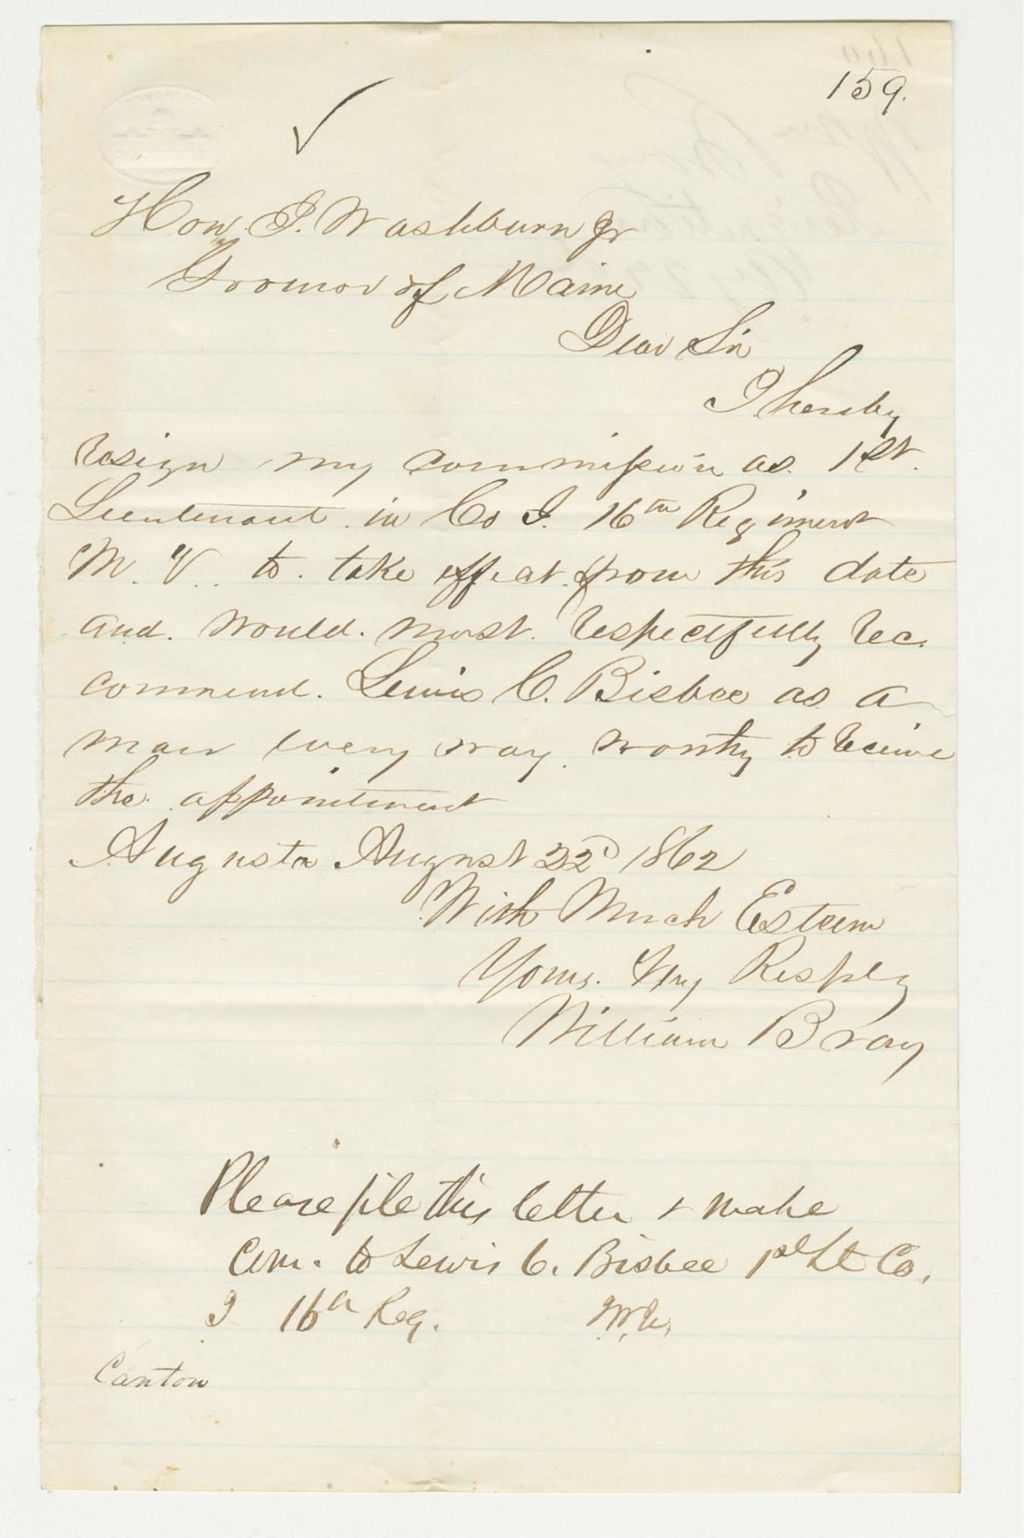 159.
Hon. I. Washburn Jr
Governor of Maine
Dear Sir
I hereby
resign my commission as 1st.
Lieutenant in Co I. 16th Regiment
M. V. to. take effect from this date
and. would. most. respectfully rec
commend. Lewis C. Bisbee as a
man every way. worthy to receive
the appointment
Augusta August 22d 1862
With Much Esteem
Yours. Very Resply
William Bray
Please file this letter & make
Com. to Lewis C. Bisbee 1st Lt Co.
I 16th Reg.
Canton